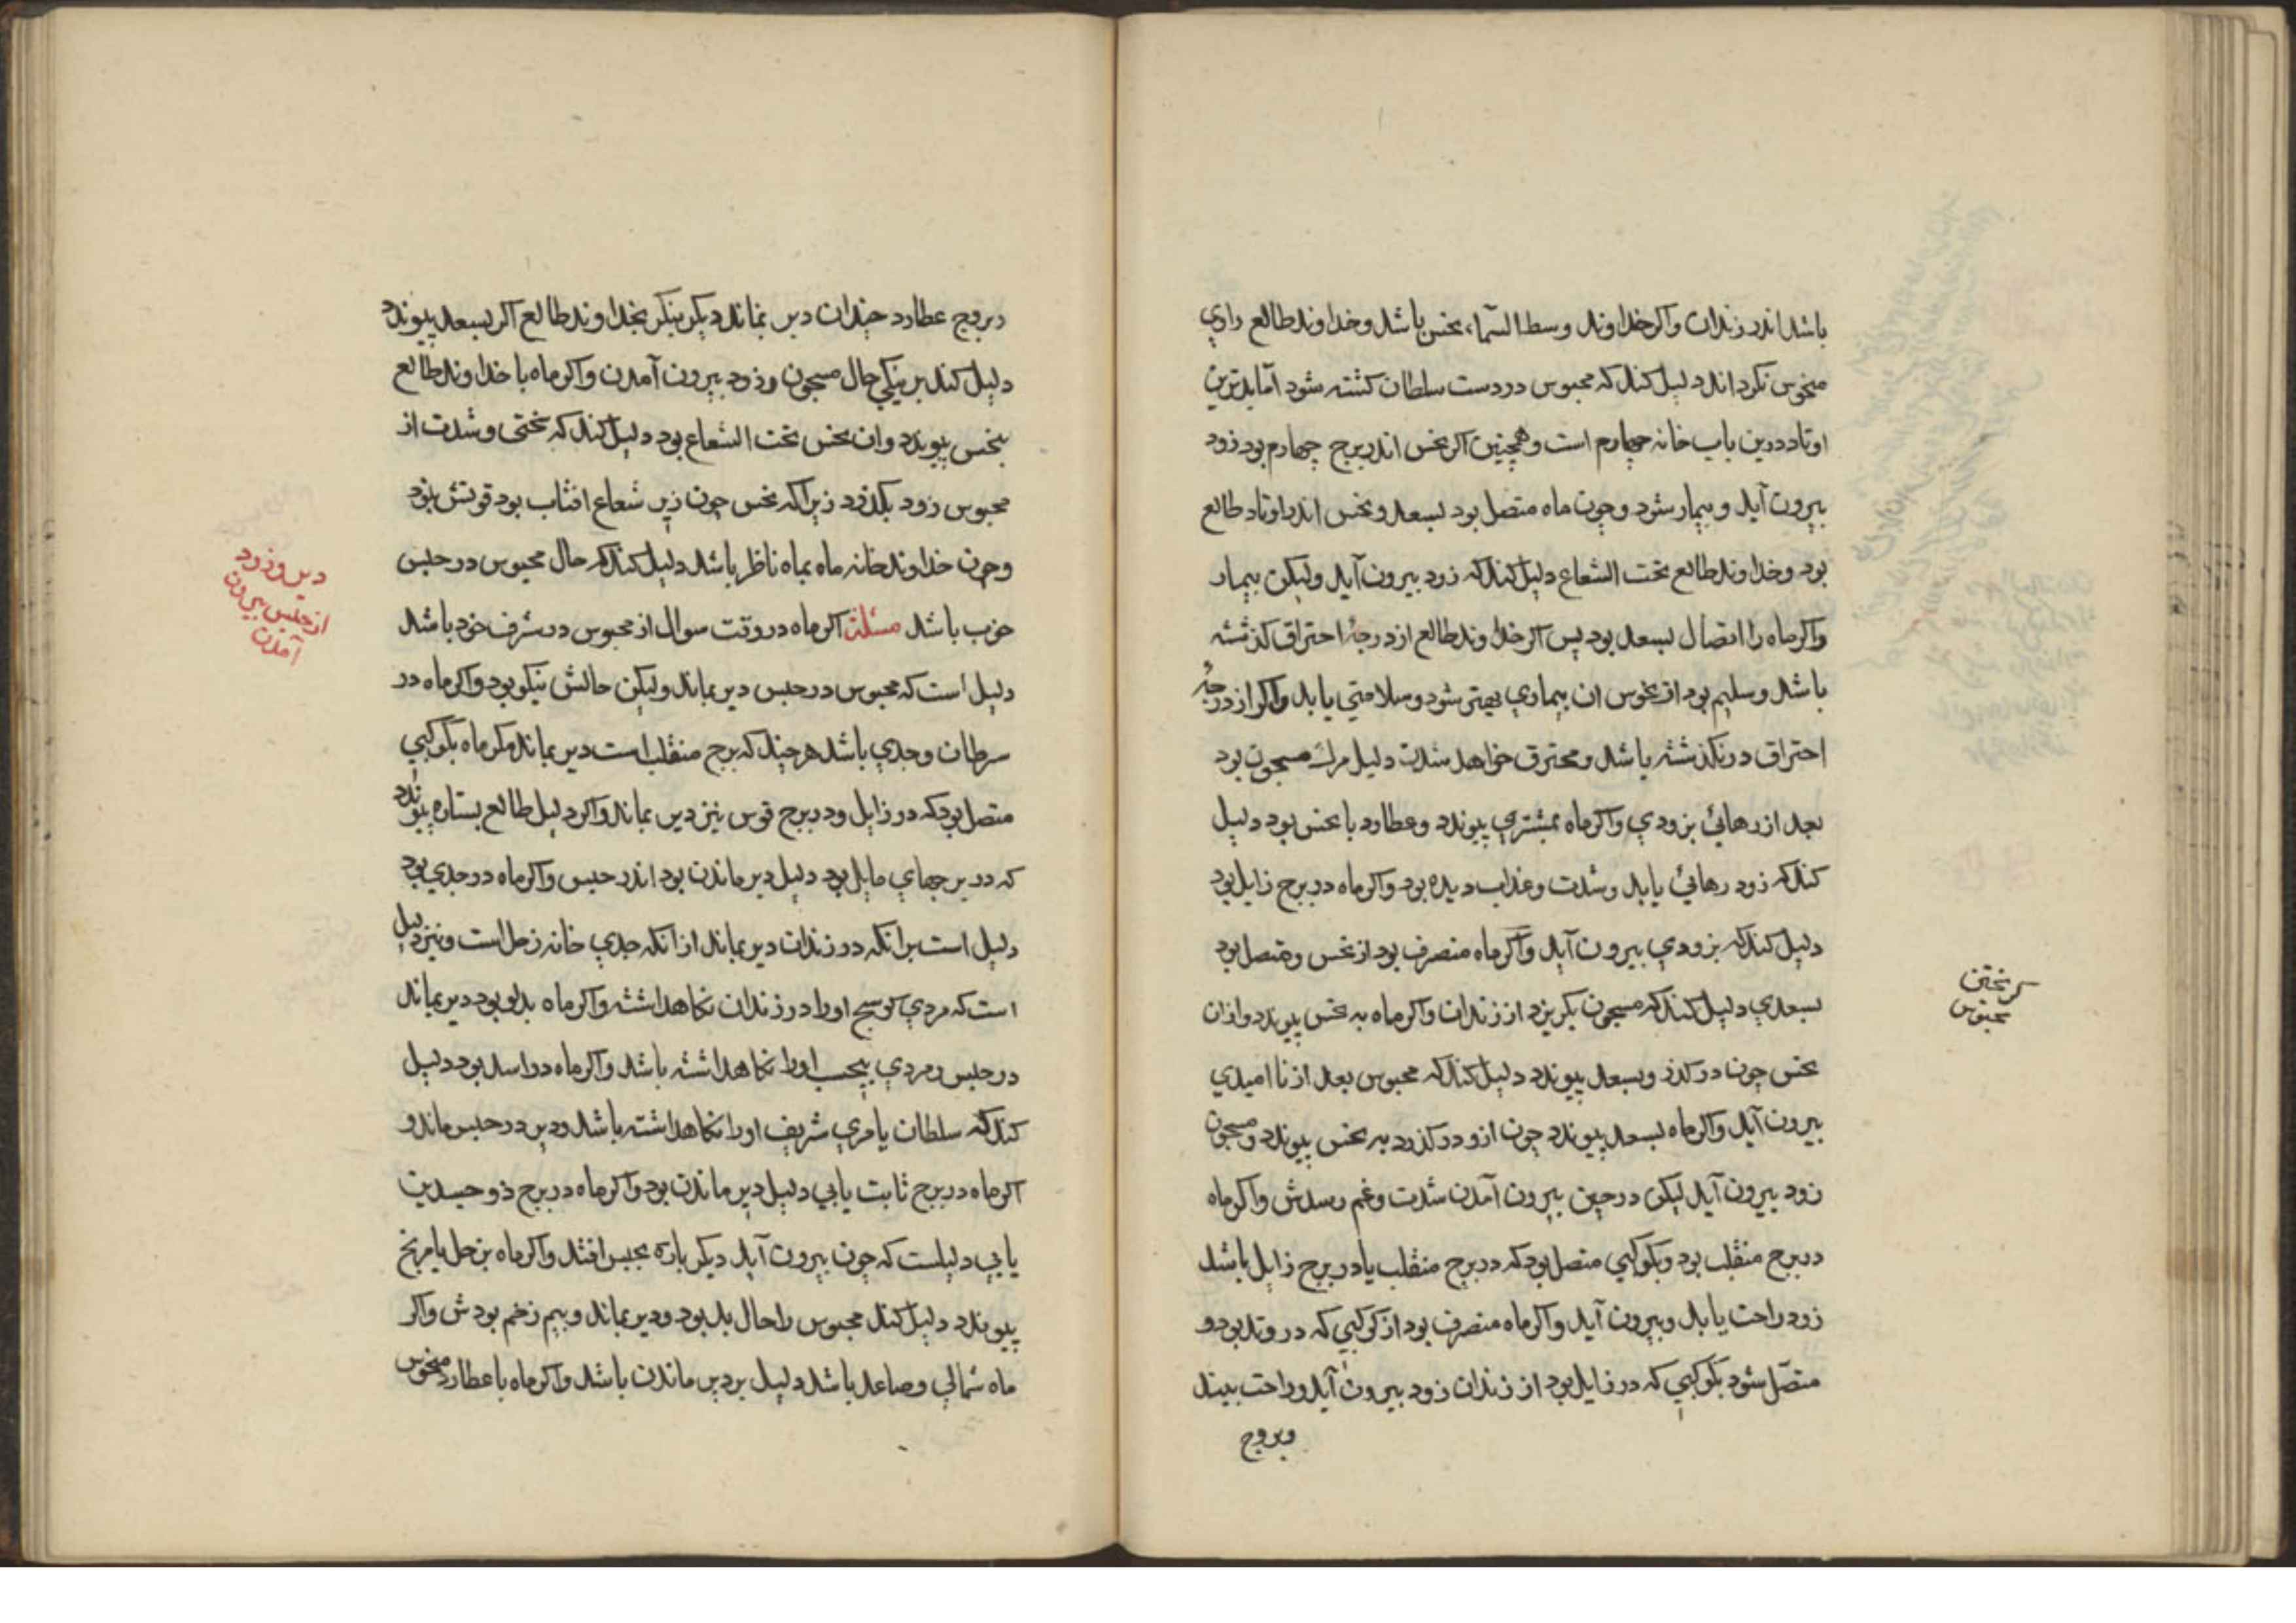 باشد اندر زندان واکر خداوند وسط السّماء نحس باشد وخداوند طالع رادي
منحوس نکرداند دلیل کند که محبوس در دست سلطان کشته شود امّا بدترین
اوتاد درین باب خانه چهارم است وهمچنین اکر نحس اندر برج چهارم بود زود
بیرون آید وبیمار شود وچون ماه متصل بود بسعد ونحس اندر اوتاد طالع
بود وخداوند طالع تحت الشعاع دلیل کند که زود بیرون آید ولیکن بیمار
واکر ماه را اتصال بسعد بود پس اکر خداوند طالع از درجۀ احتراق کذشته
باشد وسلیم بود از نحوس ان بیماري بهتر شود وسلامتي یابد واکر از درجۀ
احتراق در نکذشته باشد ومحترق خواهد شدن دلیل مرك مسجون بود
بعد از رهائي بزودي واکر ماه بمشتري پیوندد وعطارد با نحس بود دلیل
کند که زود رهائي یابد وشدت وعذاب دیده بود واکر ماه در برج زایل بود
دلیل کند که بزودي بیرون آید واکر ماه منصرف بود از نحس ومتصل بود
بسعدي دلیل کند که مسجون بکریزد از زندان واکر ماه به نحس پیوندد وازان
نحس چون درکذرد وبسعد پیوندد دلیل کند که محبوس بعد از نا امیدي
بیرون آید واکر ماه بسعد پیوندد چون ازو درکذرد به نحس پیوندد ومسجون
زود بیرون آید لیکن در حین بیرون آمدن شدت وغم رسدش واکر ماه
در برج منقلب بود وبکوکبي متصل بود که در برج منقلب یا در برج زایل باشد
زود راحت یابد وبیرون آید واکر ماه منصرف بود از کوکبي که در وتد بود و
متصّل شود بکوکبي که در زایل بود از زندان زود بیرون آید وراحت بیند
وبروج
کریختن
محبوس
وبروج عطارد چندان دیر نماند دیکر بنکر بخداوند طالع اکر بسعد پیوندد
دلیل کند بر نیکي حال مسجون وزود بیرون آمدن واکر ماه با خداوند طالع
بنحس پیوندد وان نحس تحت الشعاع بود دلیل کند که سختي وشدت از
محبوس زود بکذرد زیرا که نحس چون زیر شعاع افتاب بود قوتش نبود
وچون خداوند خانه ماه بماه ناظر باشد دلیل کند که حال محبوس در حبس
خوب باشد مسئلة اکر ماه در وقت سوال از محبوس در شرف خود باشد
دلیل است که محبوس در حبس دیر بماند ولیکن حالش نیکو بود واکر ماه در
سرطان وجدي باشد هر چند که برج منقلب است دیر بماند مکر ماه بکوکبي
متصل بود که در زایل ودر برج قوس نیز دیر بماند واکر دلیل طالع بستاره پیوندد
که در برجهاي مایل بود دلیل دیر ماندن بود اندر حبس واکر ماه در جدي بود
دلیل است برانکه در زندان دیر بماند از انکه جدي خانه زحل است ونیز دلیل
است که مردي کوسج اورا در زندان نکاهداشته واکر ماه بدلو بود دیر بماند
در حبس ومردي اورا نکاهداشته باشد واکر ماه در اسد بود دلیل
کند که سلطان یا مردي شریف اورا نکاهداشته باشد ودیر در حبس ماند و
اکر ماه در برج ثابت یابي دلیل دیر ماندن بود واکر ماه در برج ذو جسدین
یابي دلیلست که چون بیرون آید دیکر باره بحبس افتد واکر ماه بزحل یا مریخ
پیوندد دلیل کند محبوس را حال بد بود ودیر بماند وبیم زخم بودش واکر
ماه شمالي وصاعد باشد دلیل بر دیر ماندن باشد واکر ماه با عطارد منحوس
دیر وزود
از حبس بیرون
آمدن